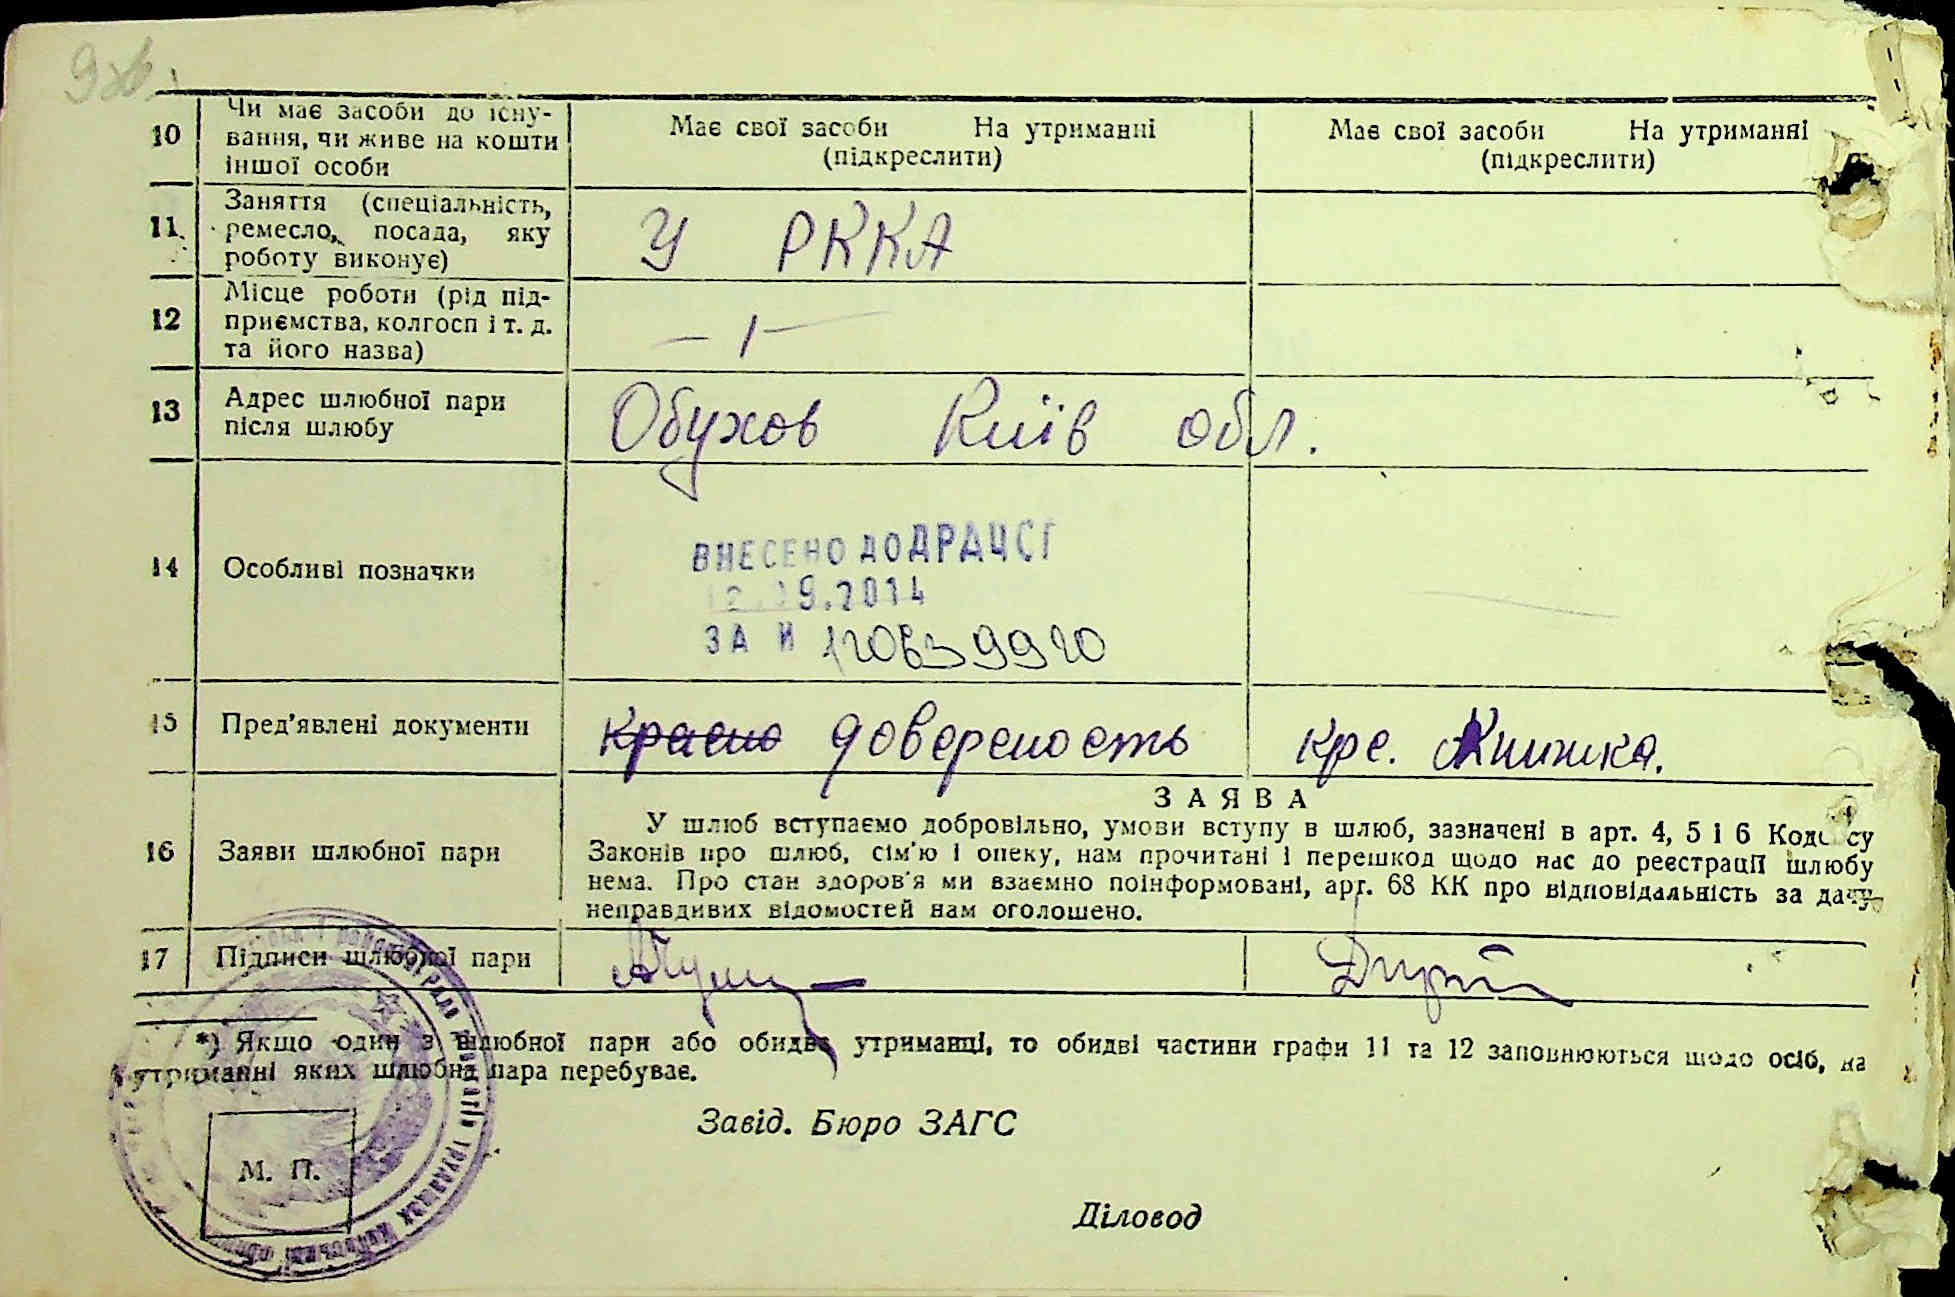 10
Чи має засоби до існу-
вання, чи живе на кошти
іншої особи
Має свої засоби На утриманні
(підкреслити)
Має свої засоби На утриманні
(підкреслити)
11
Заняття (спеціальність,
ремесло, посада, яку
роботу виконує)
У РККА
12
Місце роботи (рід під-
приємства, колгосп і т. д.
та його назва)
13
Адрес шлюбної пари
після шлюбу
Обухов Київ обл.
14
Особливі позначки
ВНЕСЕНО ДО ДРАЦСГ
.2014
ЗА №
15
Пред'явлені документи
доверености
кре. книжка.
16
Заяви шлюбної пари
ЗАЯВА
У шлюб вступаємо добровільно, умови вступу в шлюб, зазначені в арт. 4, 5 і 6 Кодексу
Законів про шлюб, сім'ю і опеку, нам прочитані і перешкод щодо нас до реєстрації шлюбу
нема. Про стан здоров'я ми взаємно поінформовані, арт. 68 КК про відповідальність за дачу
неправдивих відомостей нам оголошено.
17
Підписи шлюбної пари
*) Якщо один з шлюбної пари або обидва утриманці, то обидві частини графи 11 та 12 заповнюються щодо осіб, на
утриманні яких шлюбна пара перебуває.
Завід. Бюро ЗАГС
М. П.
Діловод